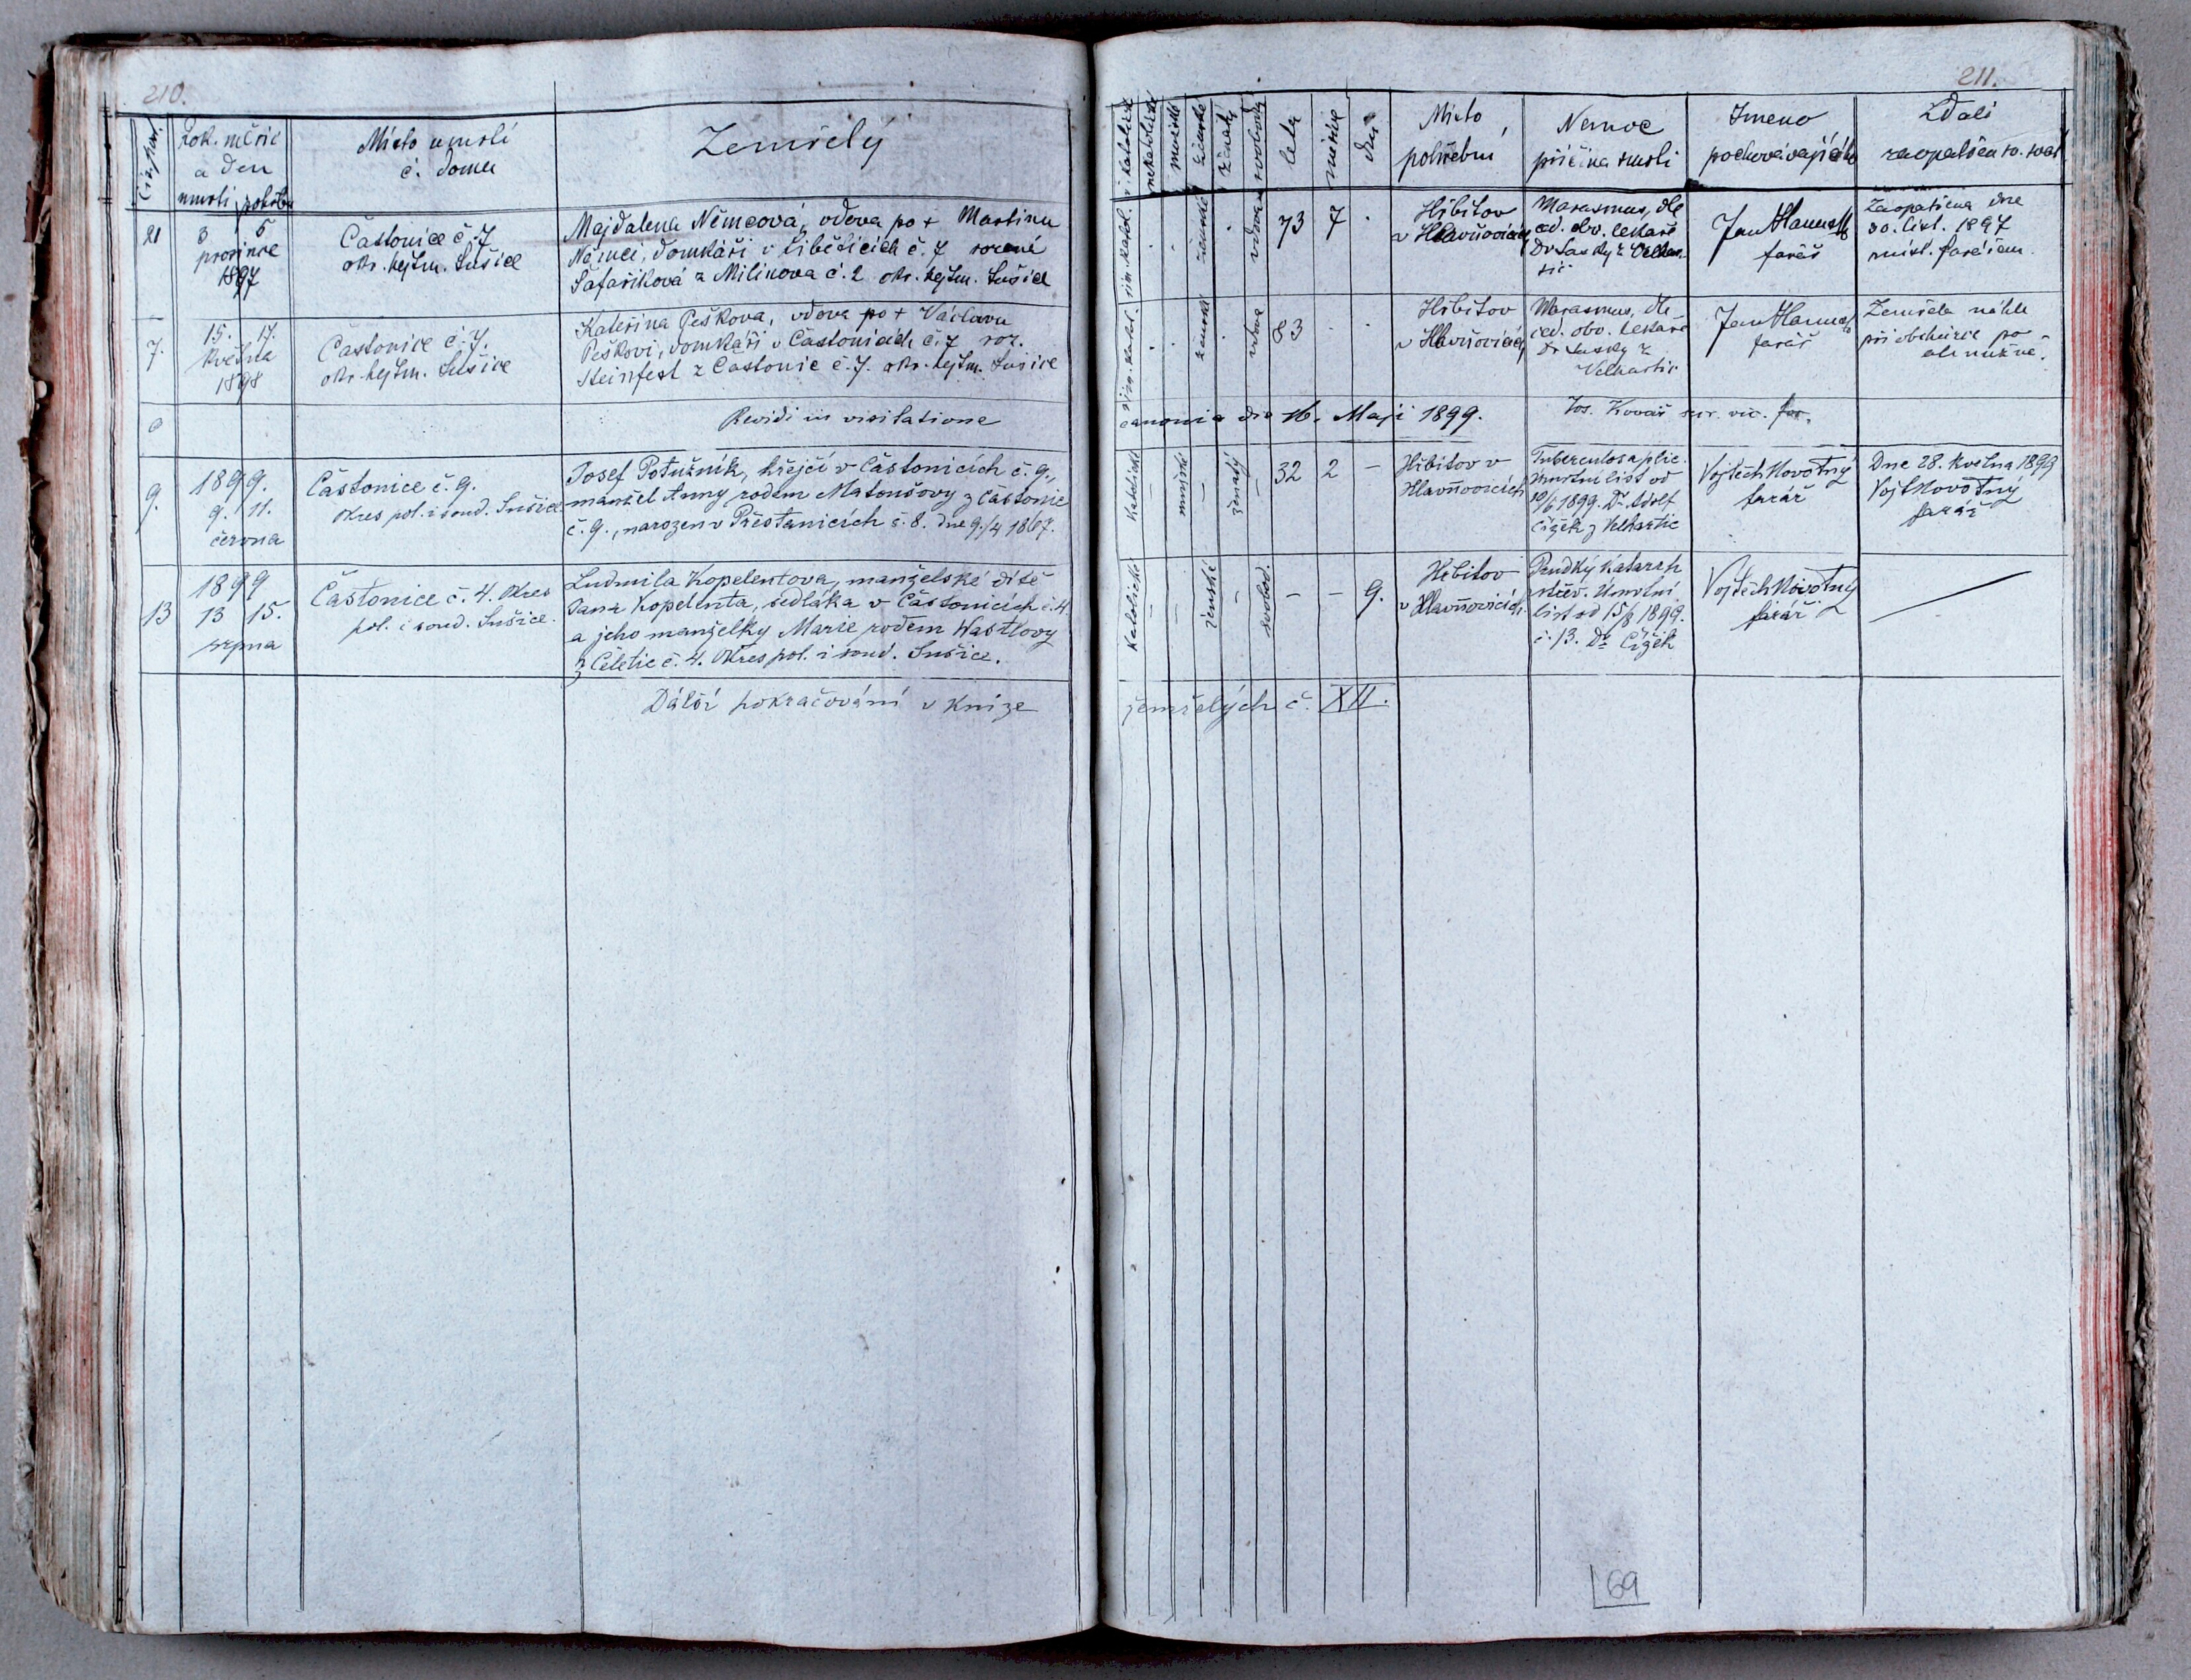 210.
Rok. měsíc
a den
úmrtí pohřbu
Místo úmrtí
č. domu
Zemřelý
21
3 5
prosince
1897
Častonice č. 7
okr. hejtm. Sušice
Majdalena Němcová, vdova po + Martinu
Němci, domkáři v Libětících č. 7 rozené
Šafaříková z Milínova č. 2 okr. hejtm. Sušice
7.
15. 17.
května
1898
Častonice č. 7.
okr. hejtm. Sušice
Kateřina Peškova, vdova po + Václavu
Peškovi, domkáři v Častonicích č. 7 roz.
Steinfest z Častonic č. 7. okr. hejtm. Sušice
Revidi in visitatione
9.
1899.
9. 11.
června
Částonice č. 9.
Okres pol. i soud. Sušice
Josef Potužník, křejčí v Částonicích č. 9.,
manžel Anny rodem Matoušovy z Částonic
č. 9., narozen v Přestanicích č. 8. dne 9./4 1867.
13
1899
13 15.
srpna
Částonice č. 4. Okres
pol. i soud. Sušice.
Ludmila Kopelentova, manželské dítě
Jana Kopelenta, sedláka v Částonicích č. 4
a jeho manželky Marie rodem Wastlovy
z Čeletic č. 4. Okres pol. i soud. Sušice.
Dálší pokračování v knize
211.
katolické
nekatolické
mužské
ženské
ženatý
svobodný
léta
měsíce
dni
Místo
pohřební
Nemoc
příčina smrti
Jméno
pochovávajícího
Zdali
zaopatřen sv. svát.
řím. katol.
ženské
vdova
73
7
Hřbitov
v Hlavňovicích
Marasmus, dle
ed. obv. lékaře
Dr Lasky z Velhar-
tic
Jan Hanuš
farář
Zaopatřena dne
30. list. 1897
míst. farářem.
řím. katol.
ženské
vdova
83
Hřbitov
v Hlavňovicích
Marasmus, dle
ced. obv. lékaře
Dr Lasky z
Velhartic
Jan Hanuš
farář
Zemřela náhle
při obchůzce po
almužně.
canonica die 16. Maji 1899.
Jos. Kovář
katolické
mužské
ženatý
32
2
Hřbitov v
Hlavňovicích
Tuberculosa plic.
Úmrtní list od
10/6 1899. Dr. Adolf
Čížek z Velhartic
Vojtěch Novotný
farář
Dne 28. Května 1899
Vojt. Novotný
farář
Katolické
ženské
svobod.
9.
Hřbitov
v Hlavňovicích.
Prudký katarrh
střev. Úmrtní
list od 15/8 1899.
č. 13. Dr Čížek
Vojtěch Novotný
farář
zemřelých č. XII.
69